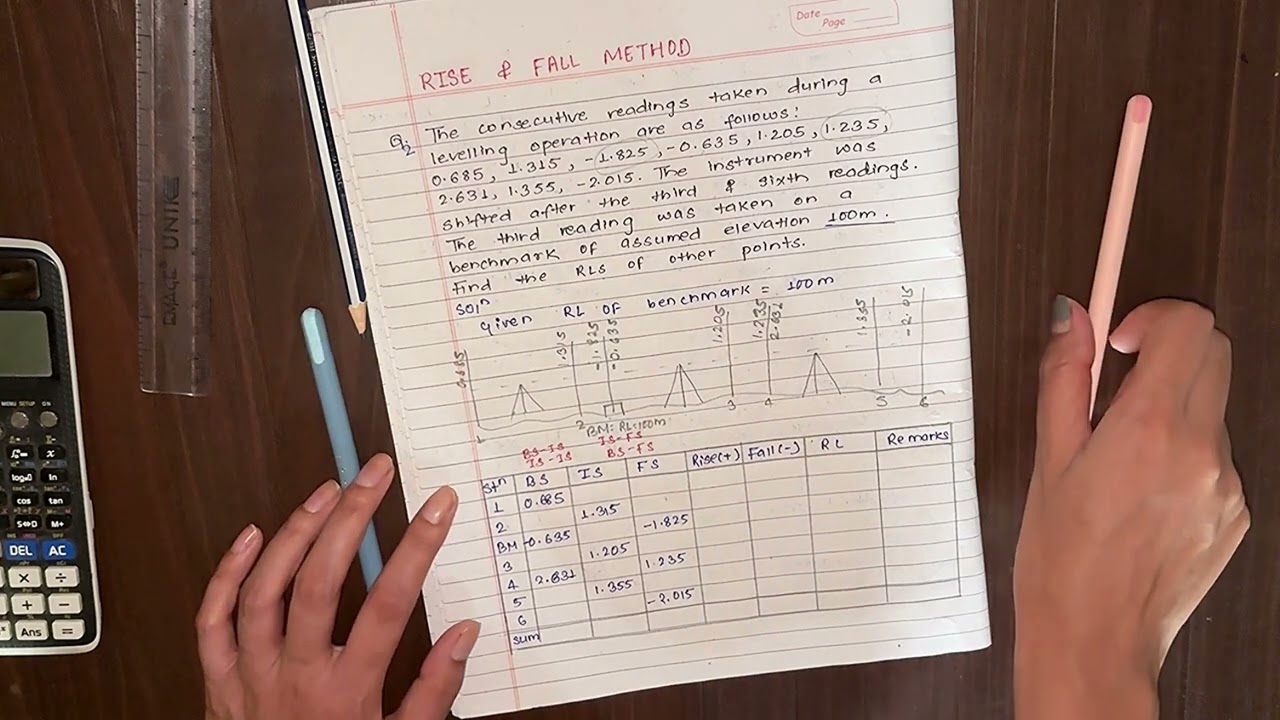 Date
Page
RISE & FALL METHOD
Q2 The consecutive readings taken during a
levelling operation are as follows:
0.685, 1.315, -1.825, -0.635, 1.205, 1.235,
2.631, 1.355, -2.015. The instrument was
shifted after the third & sixth readings.
The third reading was taken on a
benchmark of assumed elevation 100m.
Find the RLs of other points.
Solⁿ
Given RL of benchmark = 100m
0.685 1.315 -1.825 -0.635 1.205 1.235 2.631 1.355 -2.015
1 2 3 4 5 6
BM: RL=100m
BS-IS IS-FS
IS-IS BS-FS
Stⁿ BS IS FS Rise(+) Fall(-) RL Remarks
1 0.685
2 1.315
BM -0.635 -1.825
3 1.205
4 2.631 1.235
5 1.355
6 -2.015
sum
IMAGE UNIK
MENU SETUP ON
log■□ ln
cos tan
S⇔D M+
DEL AC
× ÷
+ −
Ans =